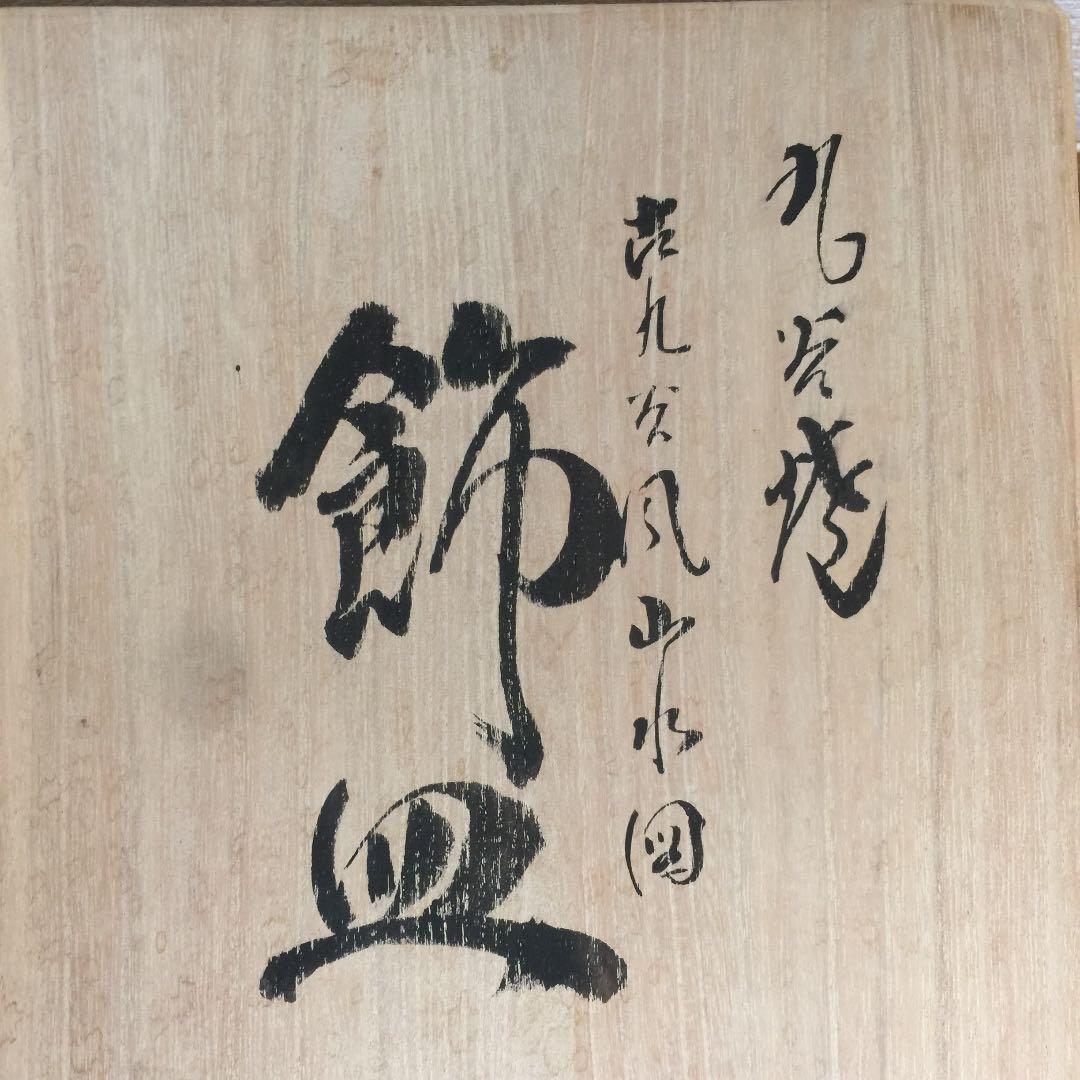 九谷燒
古九谷風山水図
飾皿